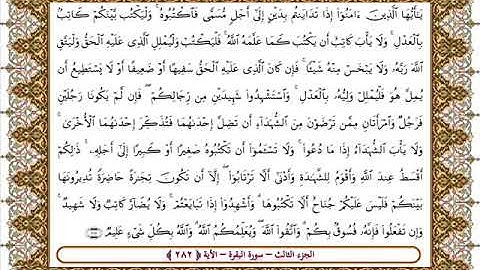 يَـٰٓأَيُّهَا ٱلَّذِينَ ءَامَنُوٓا۟ إِذَا تَدَايَنتُم بِدَيْنٍ إِلَىٰٓ أَجَلٍ مُّسَمًّى فَٱكْتُبُوهُ ۚ وَلْيَكْتُب بَّيْنَكُمْ كَاتِبٌۢ
بِٱلْعَدْلِ ۚ وَلَا يَأْبَ كَاتِبٌ أَن يَكْتُبَ كَمَا عَلَّمَهُ ٱللَّهُ ۚ فَلْيَكْتُبْ وَلْيُمْلِلِ ٱلَّذِى عَلَيْهِ ٱلْحَقُّ وَلْيَتَّقِ
ٱللَّهَ رَبَّهُۥ وَلَا يَبْخَسْ مِنْهُ شَيْـًٔا ۚ فَإِن كَانَ ٱلَّذِى عَلَيْهِ ٱلْحَقُّ سَفِيهًا أَوْ ضَعِيفًا أَوْ لَا يَسْتَطِيعُ أَن
يُمِلَّ هُوَ فَلْيُمْلِلْ وَلِيُّهُۥ بِٱلْعَدْلِ ۚ وَٱسْتَشْهِدُوا۟ شَهِيدَيْنِ مِن رِّجَالِكُمْ ۖ فَإِن لَّمْ يَكُونَا رَجُلَيْنِ
فَرَجُلٌ وَٱمْرَأَتَانِ مِمَّن تَرْضَوْنَ مِنَ ٱلشُّهَدَآءِ أَن تَضِلَّ إِحْدَىٰهُمَا فَتُذَكِّرَ إِحْدَىٰهُمَا ٱلْأُخْرَىٰ ۚ
وَلَا يَأْبَ ٱلشُّهَدَآءُ إِذَا مَا دُعُوا۟ ۚ وَلَا تَسْـَٔمُوٓا۟ أَن تَكْتُبُوهُ صَغِيرًا أَوْ كَبِيرًا إِلَىٰٓ أَجَلِهِۦ ۚ ذَٰلِكُمْ
أَقْسَطُ عِندَ ٱللَّهِ وَأَقْوَمُ لِلشَّهَـٰدَةِ وَأَدْنَىٰٓ أَلَّا تَرْتَابُوٓا۟ ۖ إِلَّآ أَن تَكُونَ تِجَـٰرَةً حَاضِرَةً تُدِيرُونَهَا
بَيْنَكُمْ فَلَيْسَ عَلَيْكُمْ جُنَاحٌ أَلَّا تَكْتُبُوهَا ۗ وَأَشْهِدُوٓا۟ إِذَا تَبَايَعْتُمْ ۚ وَلَا يُضَآرَّ كَاتِبٌ وَلَا شَهِيدٌ ۚ
وَإِن تَفْعَلُوا۟ فَإِنَّهُۥ فُسُوقٌۢ بِكُمْ ۗ وَٱتَّقُوا۟ ٱللَّهَ ۖ وَيُعَلِّمُكُمُ ٱللَّهُ ۗ وَٱللَّهُ بِكُلِّ شَىْءٍ عَلِيمٌ ﴿٢٨٢﴾
الجزء الثالث – سورة البقرة – الآية ﴿ ٢٨٢ ﴾